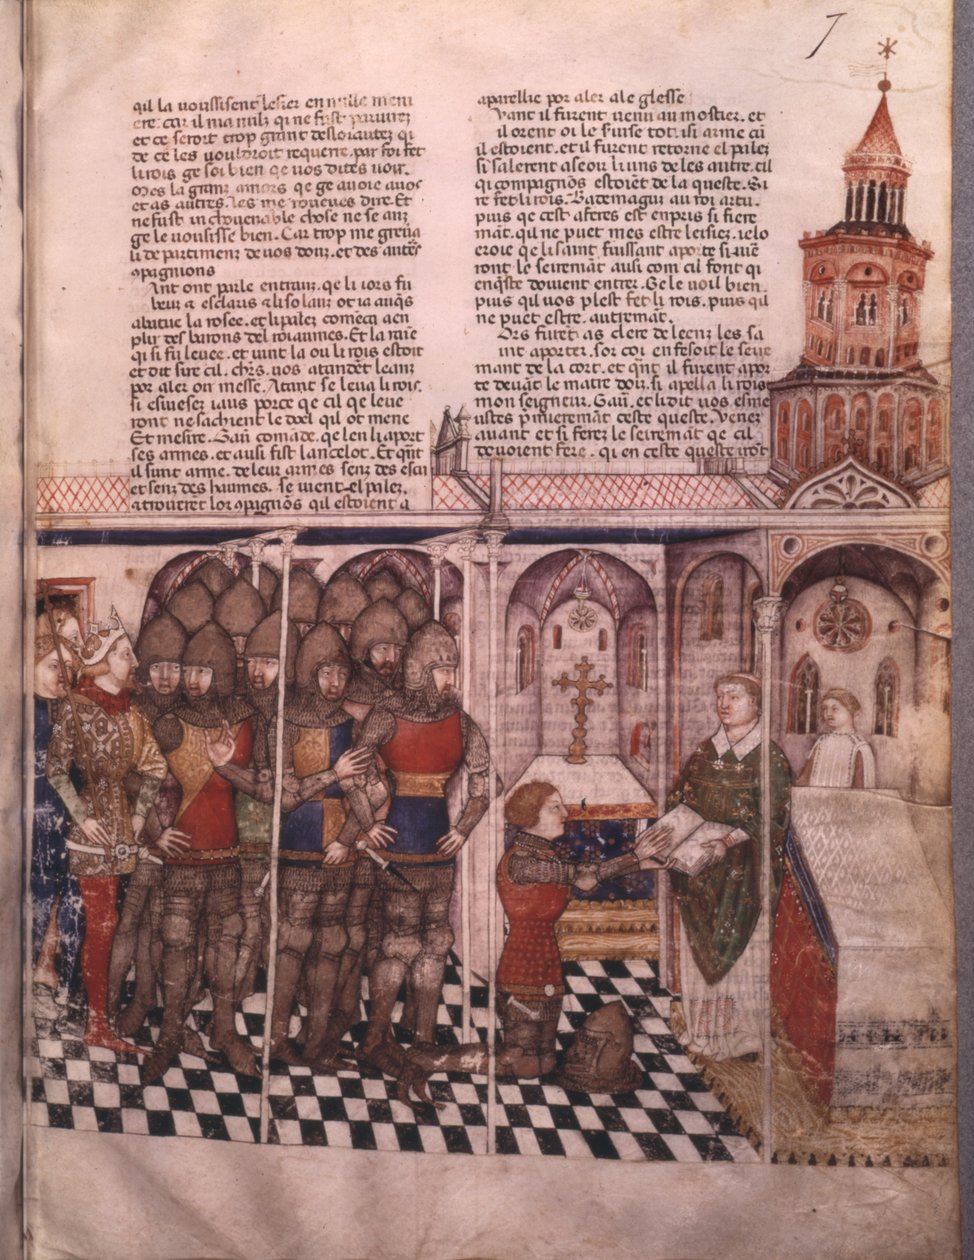 7
qil la uoussisent lesier en nulle meni
ere. car il nia nulz qi ne fust pariurez
et ce seroit trop grant desloiautez qi
de ce les uoudroit requerre. par foi fet
li rois ge soi bien qe uos dites uoir.
mes la granz amors qe ge auoie a uos
et as autres. les me
ne fust in chouenable chose ne se anz
ge le uousisse bien. Car trop me greua
li de partimenz de uos donr. et des autres
9pagnions
Ant ont parle entraux. qe li iors fu
biaus 7 esclarz 7 li solaux ot ia auqes
abatue la rosee. et li pales comeca a en
plir des barons del roiaumes. Et la raine
qi si fu leuee. et uint la ou li rois estoit
et dit sire cil. chrs. uos atandent leanz
por aler oir messe. Atant se leua li rois.
si esuiesez iaus porce qe cil qe leue
ront ne sachent le doel qil ot mene
Et mesire. Gau. comade. qe len li aport
ses armes. et ausi fist lancelot. Et qnt
il sunt arme. de leur armes senz des escu
et senz des haumes. se uient el pales.
7 trouuret lor 9pagnos qil estoient a
aparellie por aler a le glesse
Vant il furent uenu au mostier. et
il orent oi le suise tot. si arme cu
il estoient. et il furent retorne el pales
si salerent aseoir li uns de les autre. cil
qi compagnos estoiet de la queste. Si
re fet li rois. Bazemaguz au roi artu.
puis qe cest aferes est enpris si fiere
mat. qil ne puet mes estre leisiez. ie lo
eroie qe li saint fuissant aporte si iue
ront le seiremat ausi com cil font qi
en qste doiuent entrer. Ge le uoil bien.
puis qil uos plest fet li rois. puis qil
ne puet estre. autremat.
Ors furet. as clerc de leenz les sa
inz aporter. sor coi en fesoit le seire
mant de la cort. et qnt il furent apor
te deuat le matre dois. si apella li rois
mon seigneur. Gau. et li dit uos esme
ustes pmieremat ceste queste. Venez
auant et si ferez le seiremat qe cil
deuoient fere. qi en ceste queste iront